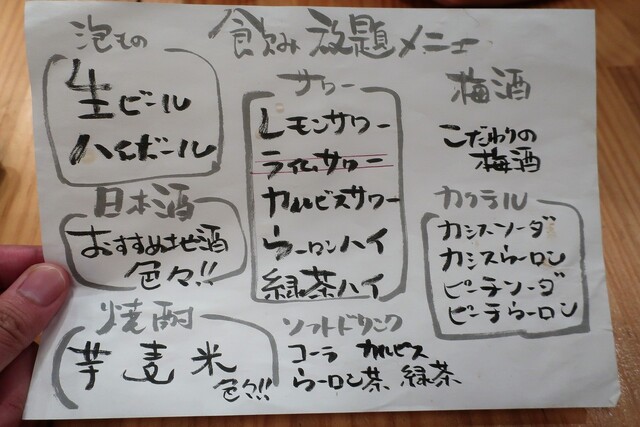 飲み放題メニュー
泡もの
生ビール
ハイボール
日本酒
おすすめ地酒
色々!!
焼酎
芋 麦 米
色々!!
サワー
レモンサワー
ライムサワー
カルピスサワー
ウーロンハイ
緑茶ハイ
ソフトドリンク
コーラ カルピス
ウーロン茶 緑茶
梅酒
こだわりの
梅酒
カクテル
カシスソーダ
カシスウーロン
ピーチソーダ
ピーチウーロン